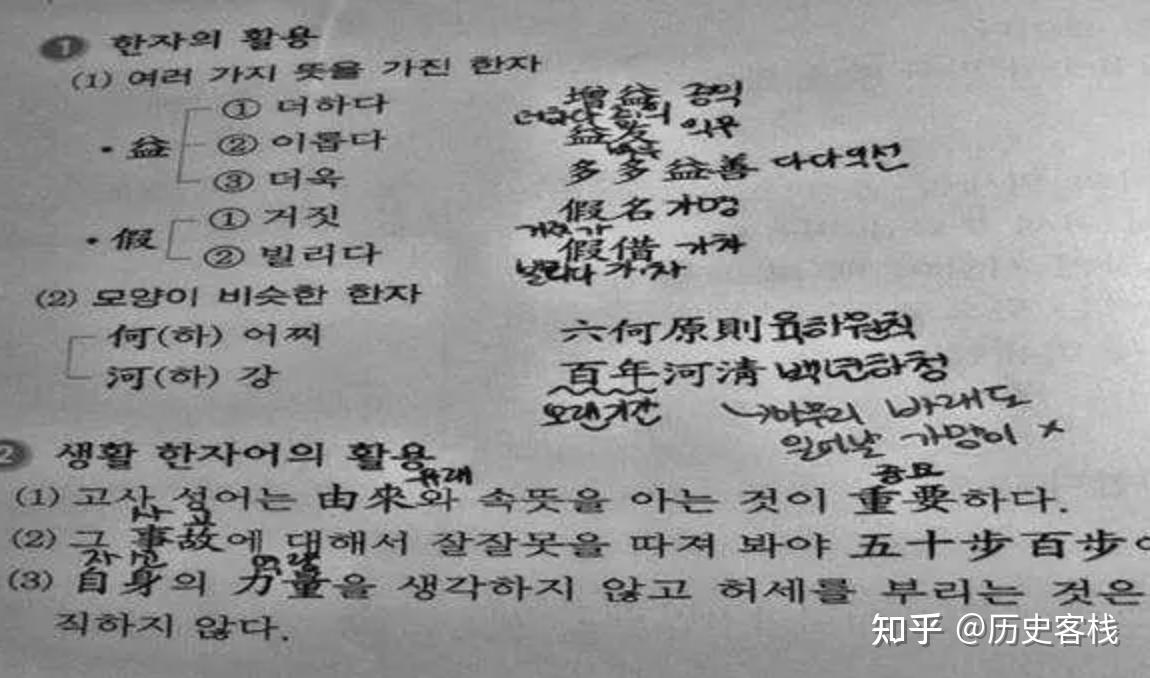 1 한자의 활용
(1) 여러 가지 뜻을 가진 한자
• 益
① 더하다 增益 증익
더하다 증익
② 이롭다 益友 익우
③ 더욱 多多益善 다다익선
• 假
① 거짓 假名 가명
거짓 가
② 빌리다 假借 가차
빌리다 가·차
(2) 모양이 비슷한 한자
何(하) 어찌 六何原則 육하원칙
河(하) 강 百年河淸 백년하청
오랜기간 아무리 바래도
일어날 가망이 x
2 생활 한자어의 활용
유래 중요
(1) 고사 성어는 由來와 속뜻을 아는 것이 重要하다.
사고
(2) 그 事故에 대해서 잘잘못을 따져 봐야 五十步百步
자신 역량
(3) 自身의 力量을 생각하지 않고 허세를 부리는 것은
직하지 않다.
知乎 @历史客栈